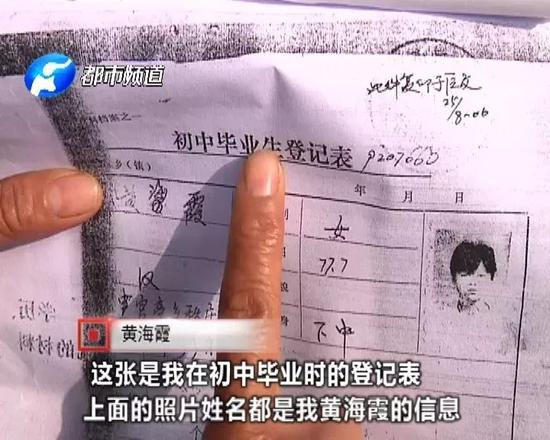 都市频道
25/8-06
初中毕业生登记表 9207060
乡(镇)
年 月 日
黄海霞
女
汉
77.7
下中
学历
的材料
黄海霞
这张是我在初中毕业时的登记表
上面的照片姓名都是我黄海霞的信息